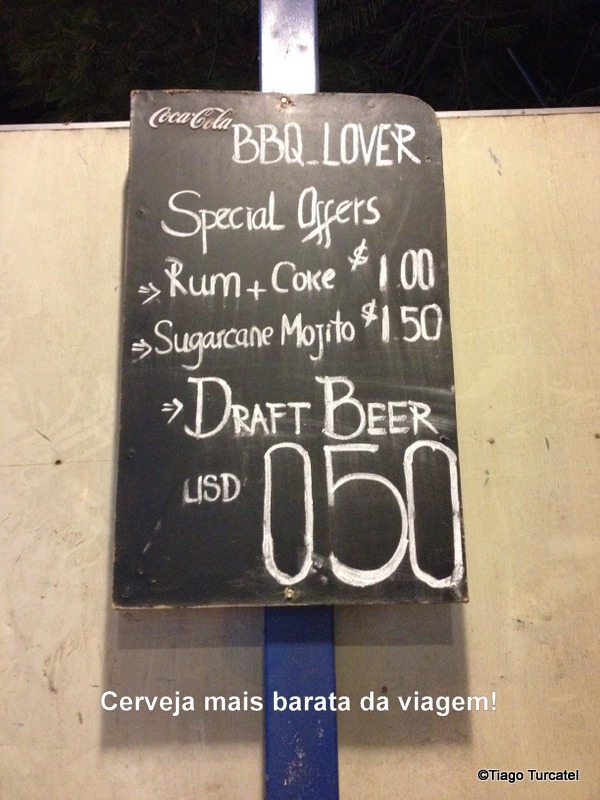 Coca-Cola
BBQ_LOVER
Special Offers
⇒ Rum + Coke $ 1.00
⇒ Sugarcane Mojito $1.50
⇒ DRAFT BEER
USD 050
Cerveja mais barata da viagem!
©Tiago Turcatel